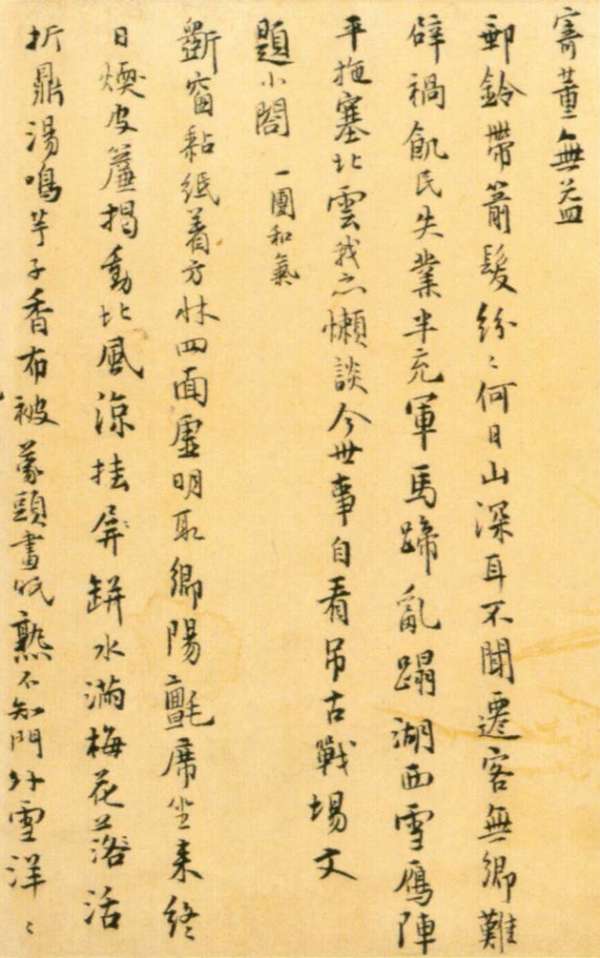 寄董無益
郵鈴帶箭髮紛〻何日山深耳不聞遷客無鄉難
辟禍飢民失業半充軍馬蹄亂蹋湖西雪鴈陣
平拖塞北雲我亦懶談今世事自看吊古戰場文
題小閣 一團和氣
斷窗黏紙着方牀四面虛明取鄉陽氈席坐来終
日煗皮簾揭動北風涼挂屏缾水滿梅花落活
折鼎湯鳴芋子香布被蒙頭晝眠熟不知門外雪洋〻